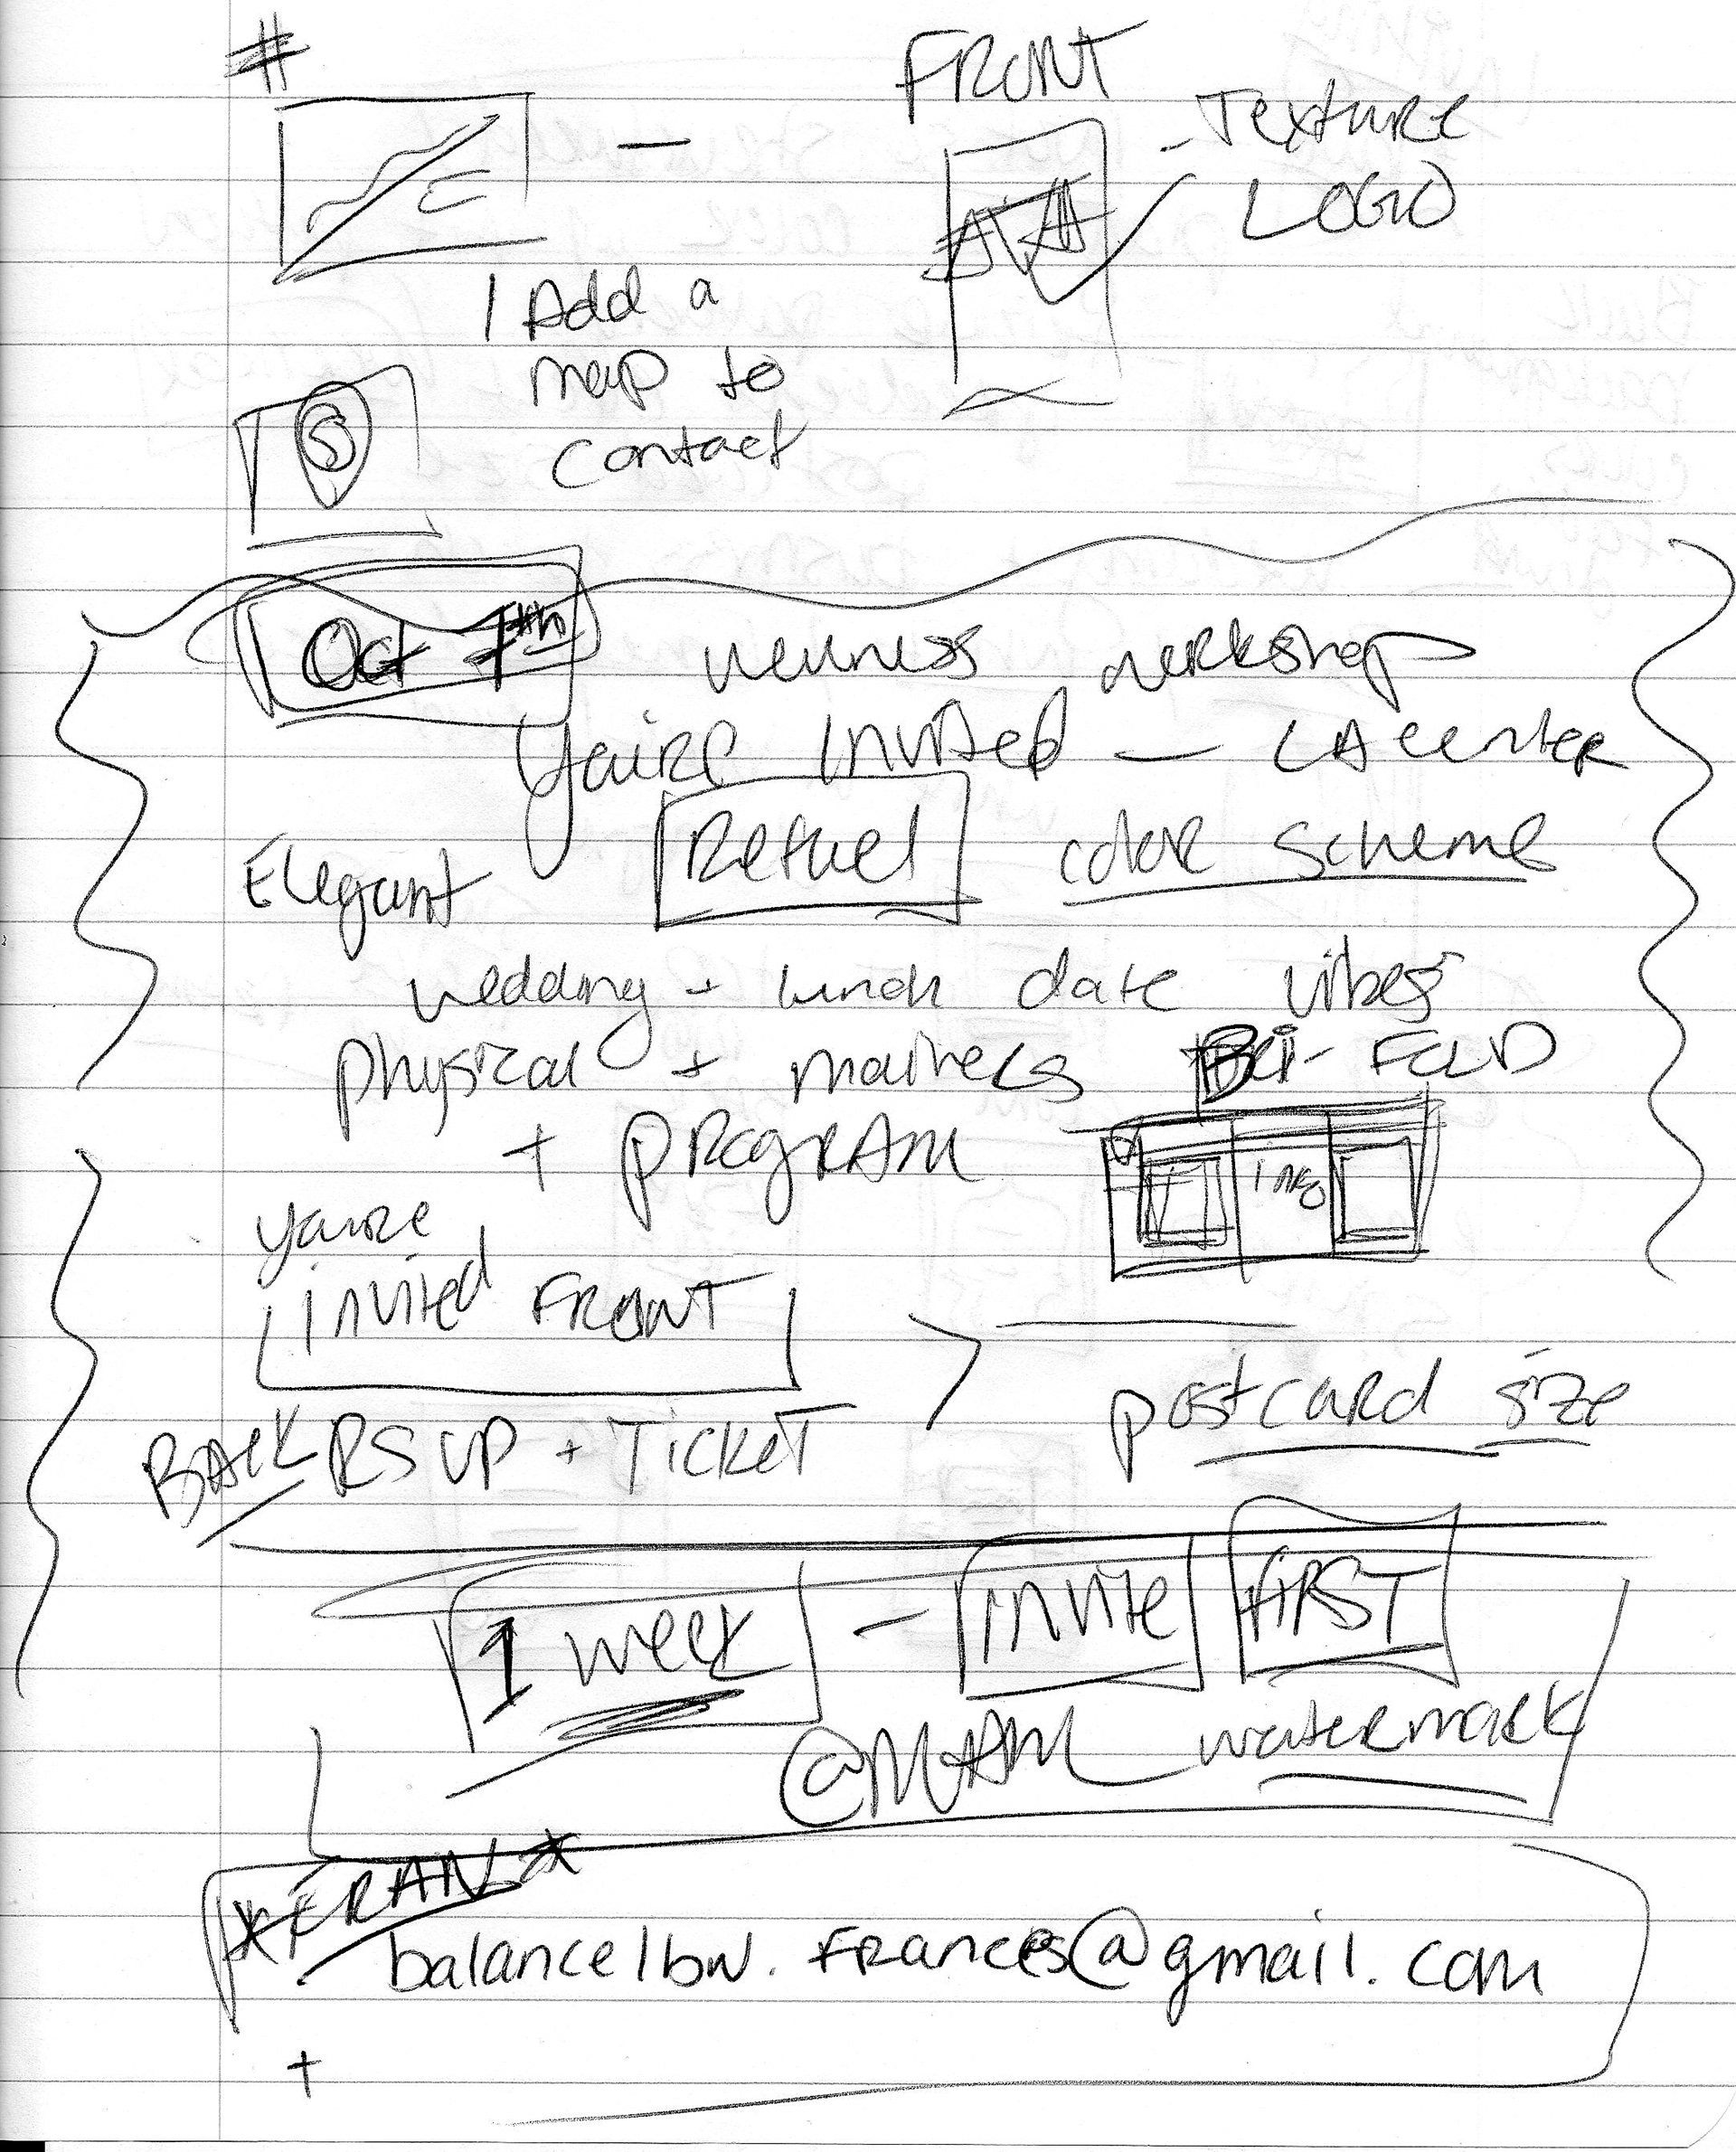 #
FRONT
- Texture
LOGO
Add a
map to
contact
S
Oct 7th wellness workshop
You're invited — LA center
Elegant Refuel color scheme
wedding + lunch date vibes
physical + mailers Bi-FOLD
+ PROGRAM
INFO
you're
invited FRONT
postcard size
BACK RSVP + TICKET
1 week - invite FIRST
@MAM watermark
*FRAN*
balancelbw.frances@gmail.com
+